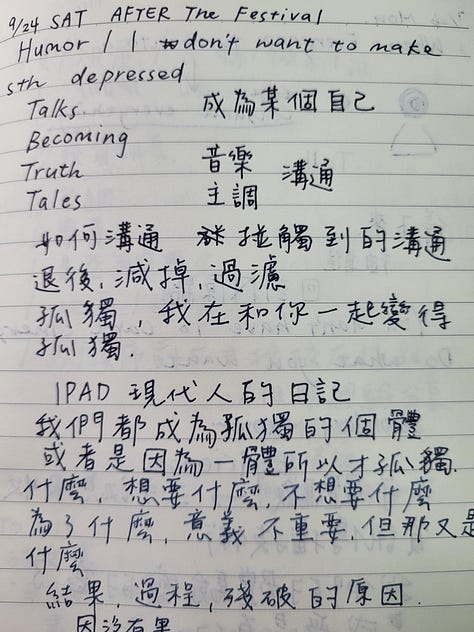 9/24 SAT AFTER The Festival
Humor / I don't want to make
sth depressed
Talks 成為某個自己
Becoming
Truth 音樂 溝通
Tales 主調
如何溝通 碰觸到的溝通
退後，減掉，過濾
孤獨，我在和你一起變得
孤獨.
IPAD 現代人的日記
我們都成為孤獨的個體
或者是因為一體所以才孤獨.
什麼，想要什麼，不想要什麼
為了什麼，意義不重要，但那又是
什麼
結果，過程，殘破的原因.
因沒有果